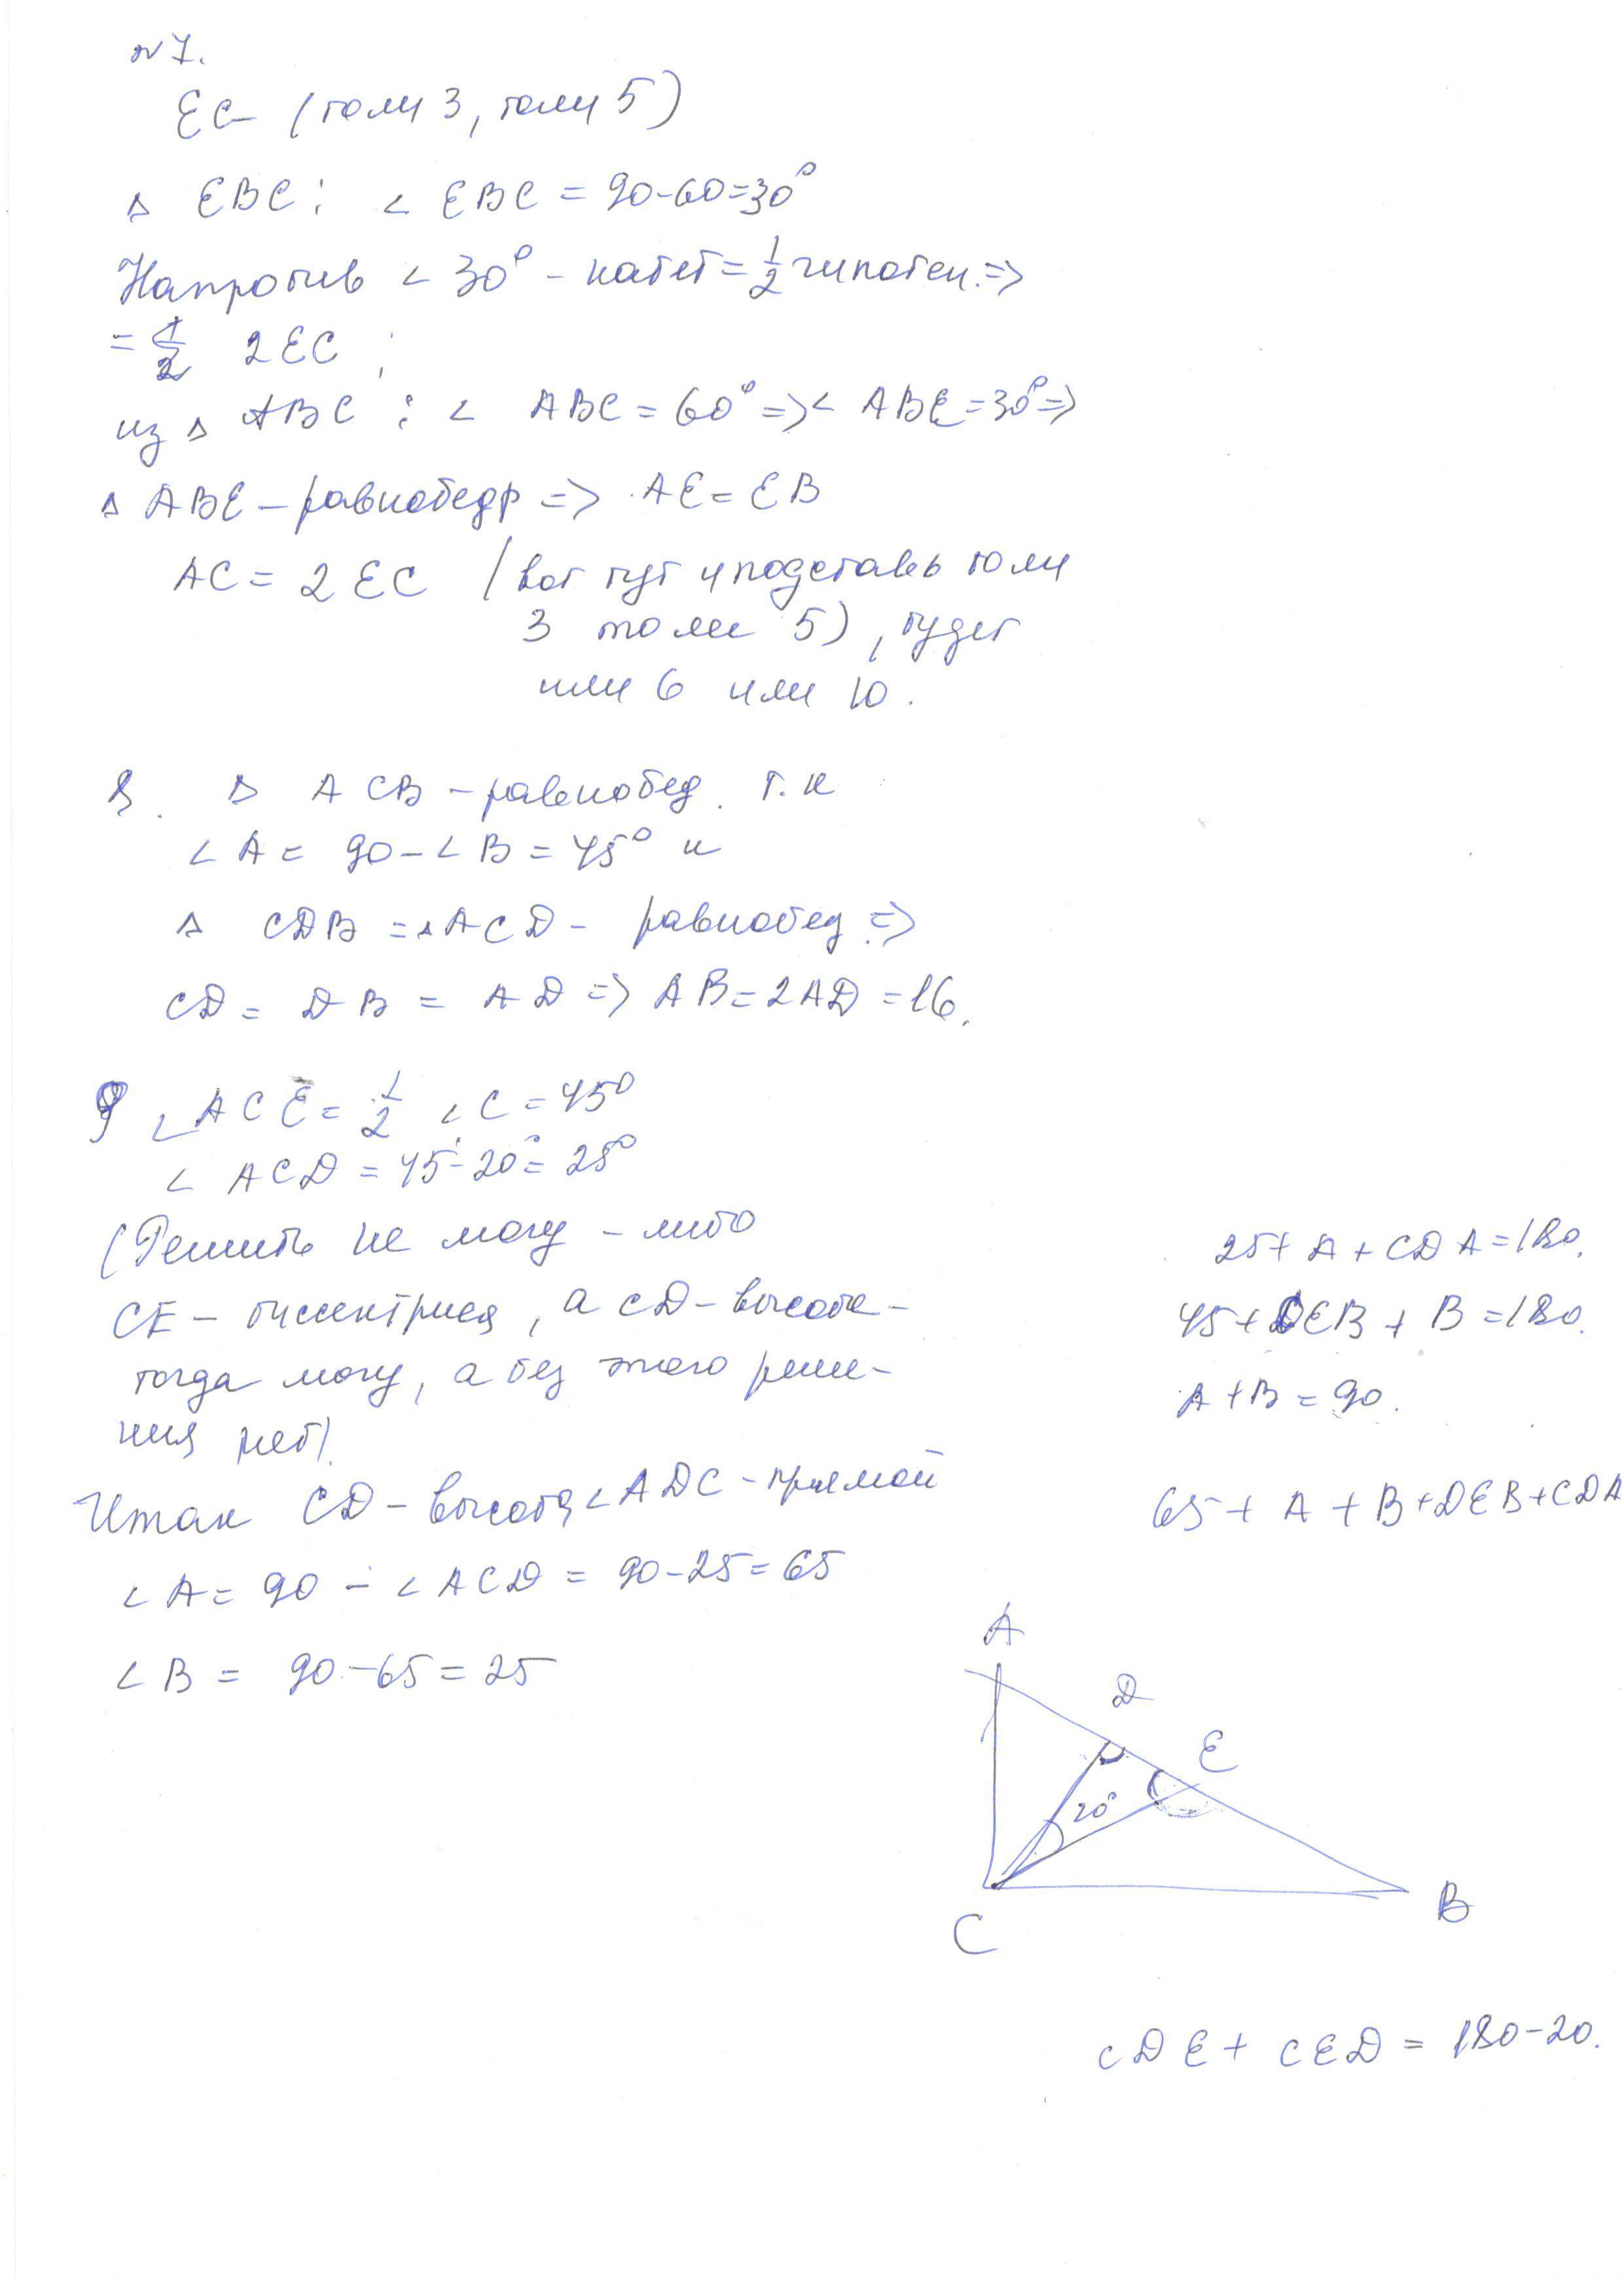 №7.
EC - (толи 3, толи 5)
△ EBC: ∠ EBC = 90-60=30°
Напротив ∠ 30° - катет = 1/2 гипотен. =>
= 1/2 2EC ;
из △ ABC : ∠ ABC = 60° => ∠ ABE = 30° =>
△ ABE - равнобедр => AE = EB
AC = 2 EC (вот тут и подставь толи
3 толи 5), будет
или 6 или 10.
8. △ ACB - равнобед. т.к
∠ A = 90 - ∠ B = 45° и
△ CDB = △ ACD - равнобед. =>
CD = DB = AD => AB = 2AD = 16.
9 ∠ ACE = 1/2 ∠ C = 45°
∠ ACD = 45° - 20° = 25°
(Решить не могу - либо
CE - биссектриса, а CD - высота -
тогда могу, а без этого реше-
ния нет).
Итак CD - высота, ∠ ADC - прямой
∠ A = 90 - ∠ ACD = 90-25 = 65
∠ B = 90 - 65 = 25
25 + A + CDA = 180.
45 + CEB + B = 180.
A + B = 90.
65 + A + B + DEB + CDA
A
D
E
20°
C
B
CDE + CED = 180-20.